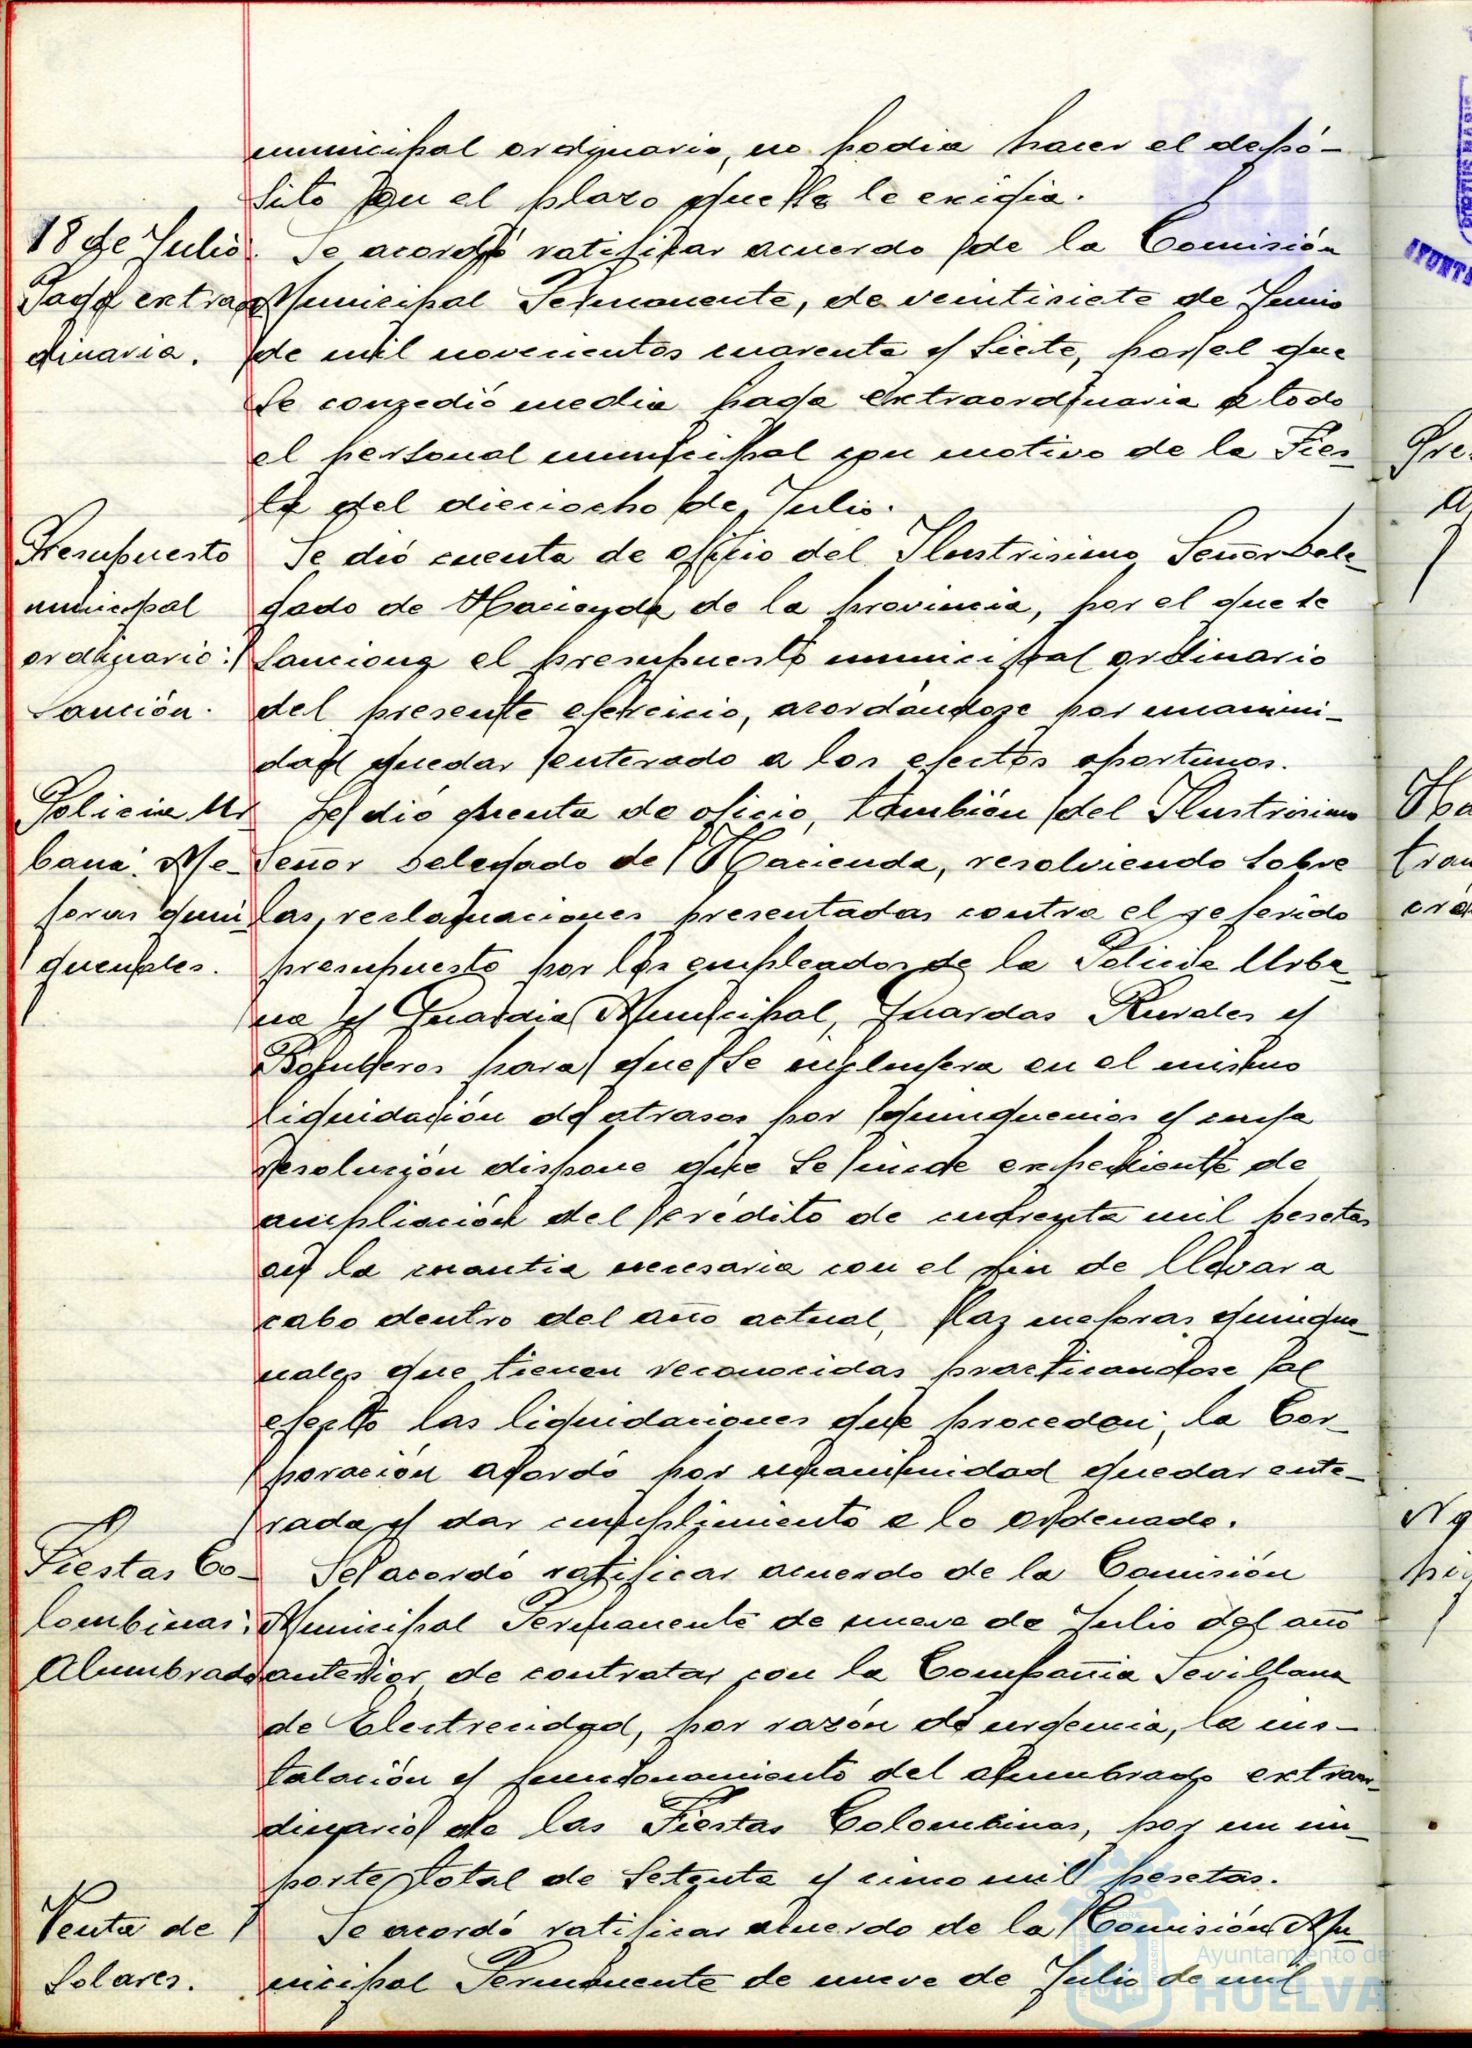 municipal ordinario, no podia hacer el depó-
sito en el plazo que se le exigia.
18 de Julio.
Paga extraor
dinaria.
Se acordó ratificar acuerdo de la Comisión
Municipal Permanente, de veintisiete de Junio
de mil novecientos cuarenta y siete, por el que
se concedió media paga extraordinaria a todo
el personal municipal con motivo de la Fies-
ta del dieciocho de Julio.
Presupuesto
municipal
ordinario:
Sanción.
Se dió cuenta de oficio del Ilustrisimo Señor Dele-
gado de Hacienda de la provincia, por el que se
sanciona el presupuesto municipal ordinario
del presente ejercicio, acordándose por unanimi-
dad quedar enterado a los efectos oportunos.
Policia Ur
bana. Me-
joras quin
quenales.
Se dió cuenta de oficio, también del Ilustrisimo
Señor Delegado de Hacienda, resolviendo sobre
las reclamaciones presentadas contra el referido
presupuesto por los empleados de la Policia Urba-
na y Guardia Municipal, Guardas Rurales y
Bomberos para que se incluyera en el mismo
liquidación de atrasos por quinquenios y cuya
resolución dispone que se inicie expediente de
ampliación del crédito de cuarenta mil pesetas
en la cuantia necesaria con el fin de llevar a
cabo dentro del año actual, las mejoras quinque-
nales que tienen reconocidas practicandose al
efecto las liquidaciones que procedan; la Cor-
poración acordó por unanimidad quedar ente-
rada y dar cumplimiento a lo ordenado.
Fiestas Co-
lombinas:
Alumbrado
Se acordó ratificar acuerdo de la Comisión
Municipal Permanente de nueve de Julio del año
anterior de contratar con la Compañia Sevillana
de Electricidad, por razón de urgencia, la ins-
talación y funcionamiento del alumbrado extraor-
dinario de las Fiestas Colombinas, por un im-
porte total de setenta y cinco mil pesetas.
Venta de
Solares.
Se acordó ratificar acuerdo de la Comisión Mu-
nicipal Permanente de nueve de Julio de mil
Ayuntamiento de
HUELVA